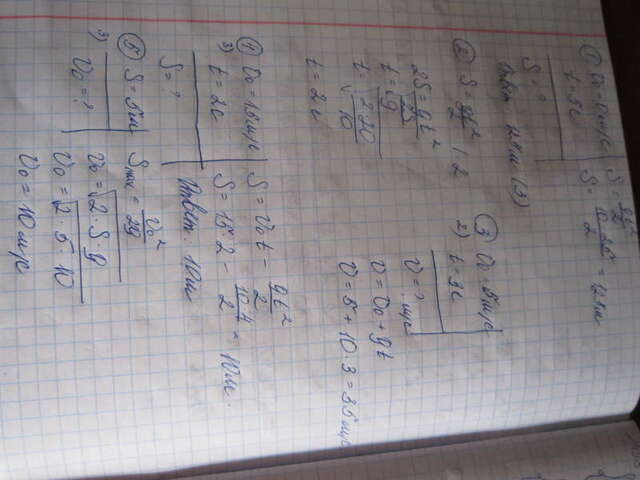 ① V₀ = 0 м/с
t = 5 с
S = ?
S = gt²/2
S = 10·25/2 = 125 м
Ответ 125 м (3)
② S = gt²/2 | ·2
2S = gt²
t = √2S/g
t = √2·20/10
t = 2 с
③ V₀ = 5 м/с
2) t = 3 с
V = ? м/с
V = V₀ + gt
V = 5 + 10·3 = 35 м/с
④ V₀ = 15 м/с
3) t = 2 с
S = ?
S = V₀t − gt²/2
S = 15·2 − 10·4/2 = 10 м.
Ответ: 10 м
⑤ S = 5 м
3) V₀ = ?
Smax = V₀²/2g
V₀ = √2·S·g
V₀ = √2·5·10
V₀ = 10 м/с